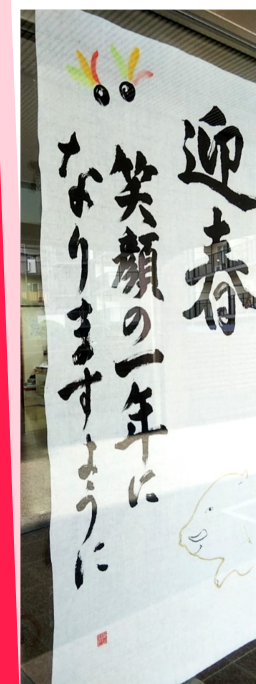 迎春
笑顔の一年に
なりますように